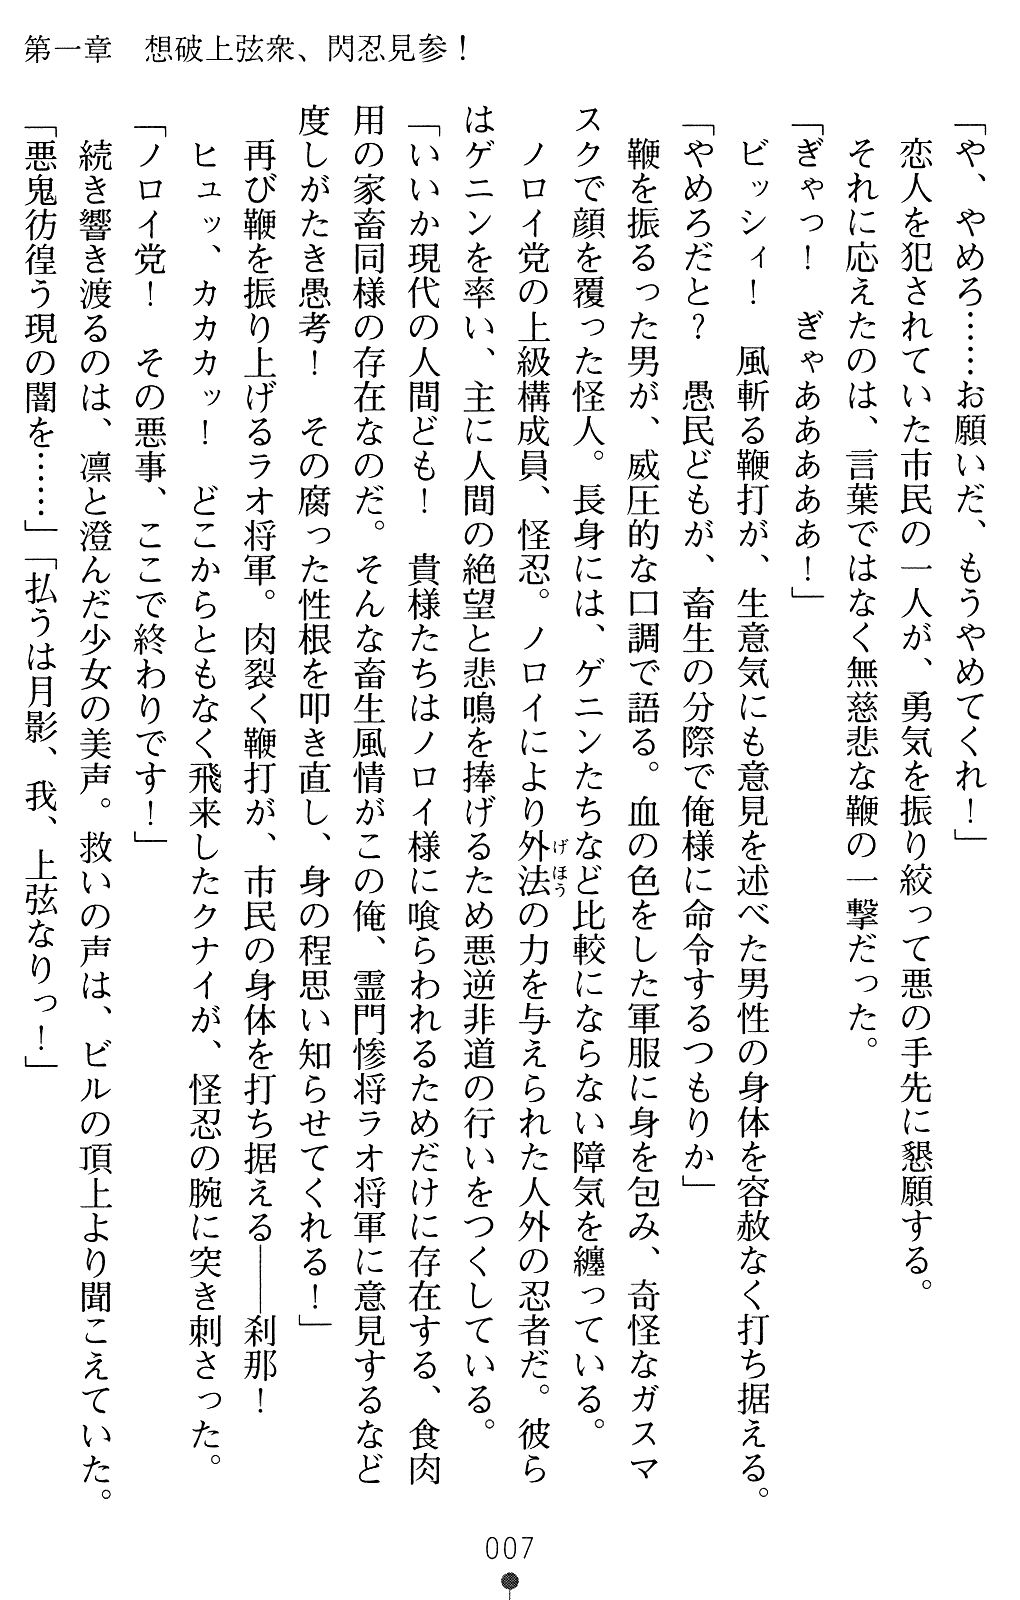 第一章　想破上弦衆、閃忍見参！
「や、やめろ……お願いだ、もうやめてくれ！」
　恋人を犯されていた市民の一人が、勇気を振り絞って悪の手先に懇願する。
　それに応えたのは、言葉ではなく無慈悲な鞭の一撃だった。
「ぎゃっ！　ぎゃああああ！」
　ビッシィ！　風斬る鞭打が、生意気にも意見を述べた男性の身体を容赦なく打ち据える。
「やめろだと？　愚民どもが、畜生の分際で俺様に命令するつもりか」
　鞭を振るった男が、威圧的な口調で語る。血の色をした軍服に身を包み、奇怪なガスマ
スクで顔を覆った怪人。長身には、ゲニンたちなど比較にならない障気を纏っている。
　ノロイ党の上級構成員、怪忍。ノロイにより外法の力を与えられた人外の忍者だ。彼ら
げほう
はゲニンを率い、主に人間の絶望と悲鳴を捧げるため悪逆非道の行いをつくしている。
「いいか現代の人間ども！　貴様たちはノロイ様に喰らわれるためだけに存在する、食肉
用の家畜同様の存在なのだ。そんな畜生風情がこの俺、霊門惨将ラオ将軍に意見するなど
度しがたき愚考！　その腐った性根を叩き直し、身の程思い知らせてくれる！」
　再び鞭を振り上げるラオ将軍。肉裂く鞭打が、市民の身体を打ち据える――刹那！
　ヒュッ、カカカッ！　どこからともなく飛来したクナイが、怪忍の腕に突き刺さった。
「ノロイ党！　その悪事、ここで終わりです！」
　続き響き渡るのは、凛と澄んだ少女の美声。救いの声は、ビルの頂上より聞こえていた。
「悪鬼彷徨う現の闇を……」「払うは月影、我、上弦なりっ！」
007